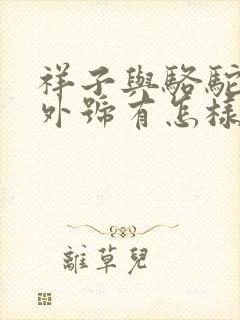 祥子與駱駝
外號有怎樣
離草兒